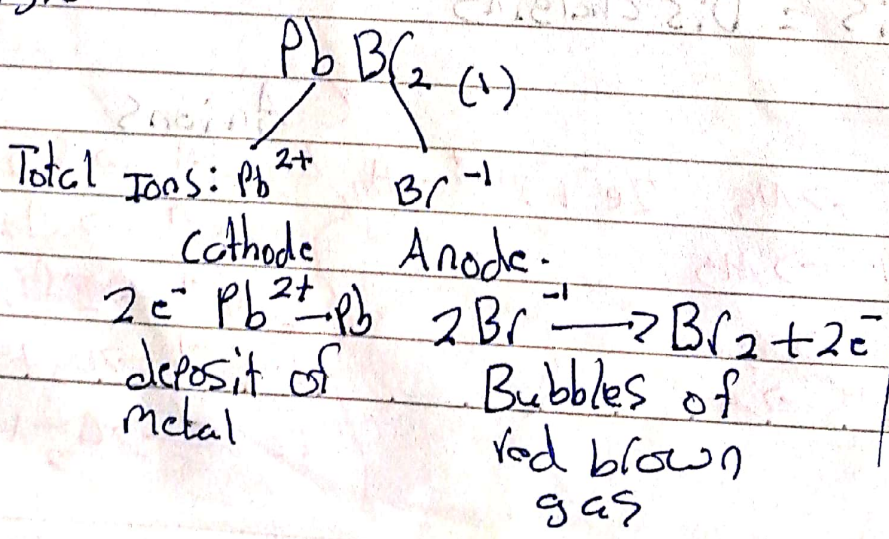 PbBr₂ (l)
Total Ions: Pb²⁺ Br⁻¹
Cathode Anode.
2e⁻ Pb²⁺→Pb 2Br⁻¹ → Br₂ + 2e⁻
deposit of Bubbles of
metal red brown
gas